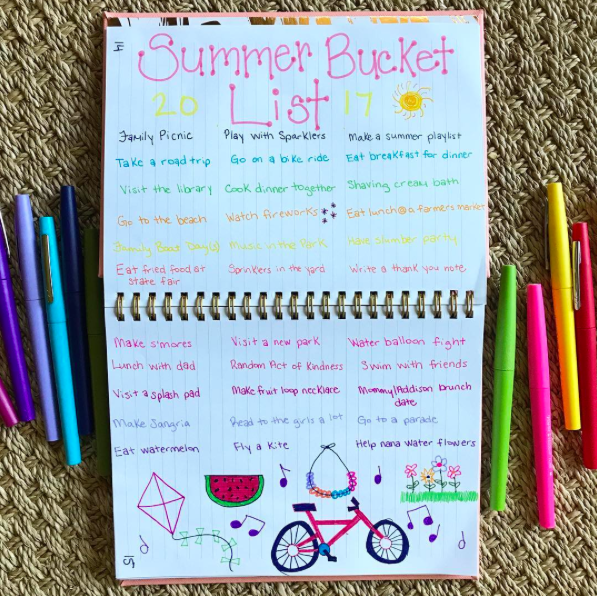 Summer Bucket
20 List 17
Family Picnic Play with Sparklers Make a summer playlist
Take a road trip Go on a bike ride Eat breakfast for dinner
Visit the library Cook dinner together Shaving cream bath
Go to the beach Watch fireworks Eat lunch @ a farmers market
Family Boat Day(s) Music in the Park Have slumber party
Eat fried food at Sprinklers in the yard Write a thank you note
state fair
Make s'mores Visit a new park Water balloon fight
Lunch with dad Random Act of Kindness Swim with friends
Visit a splash pad Make fruit loop necklace Mommy/Addison brunch
date
Make Sangria Read to the girls a lot Go to a parade
Eat watermelon Fly a Kite Help nana water flowers